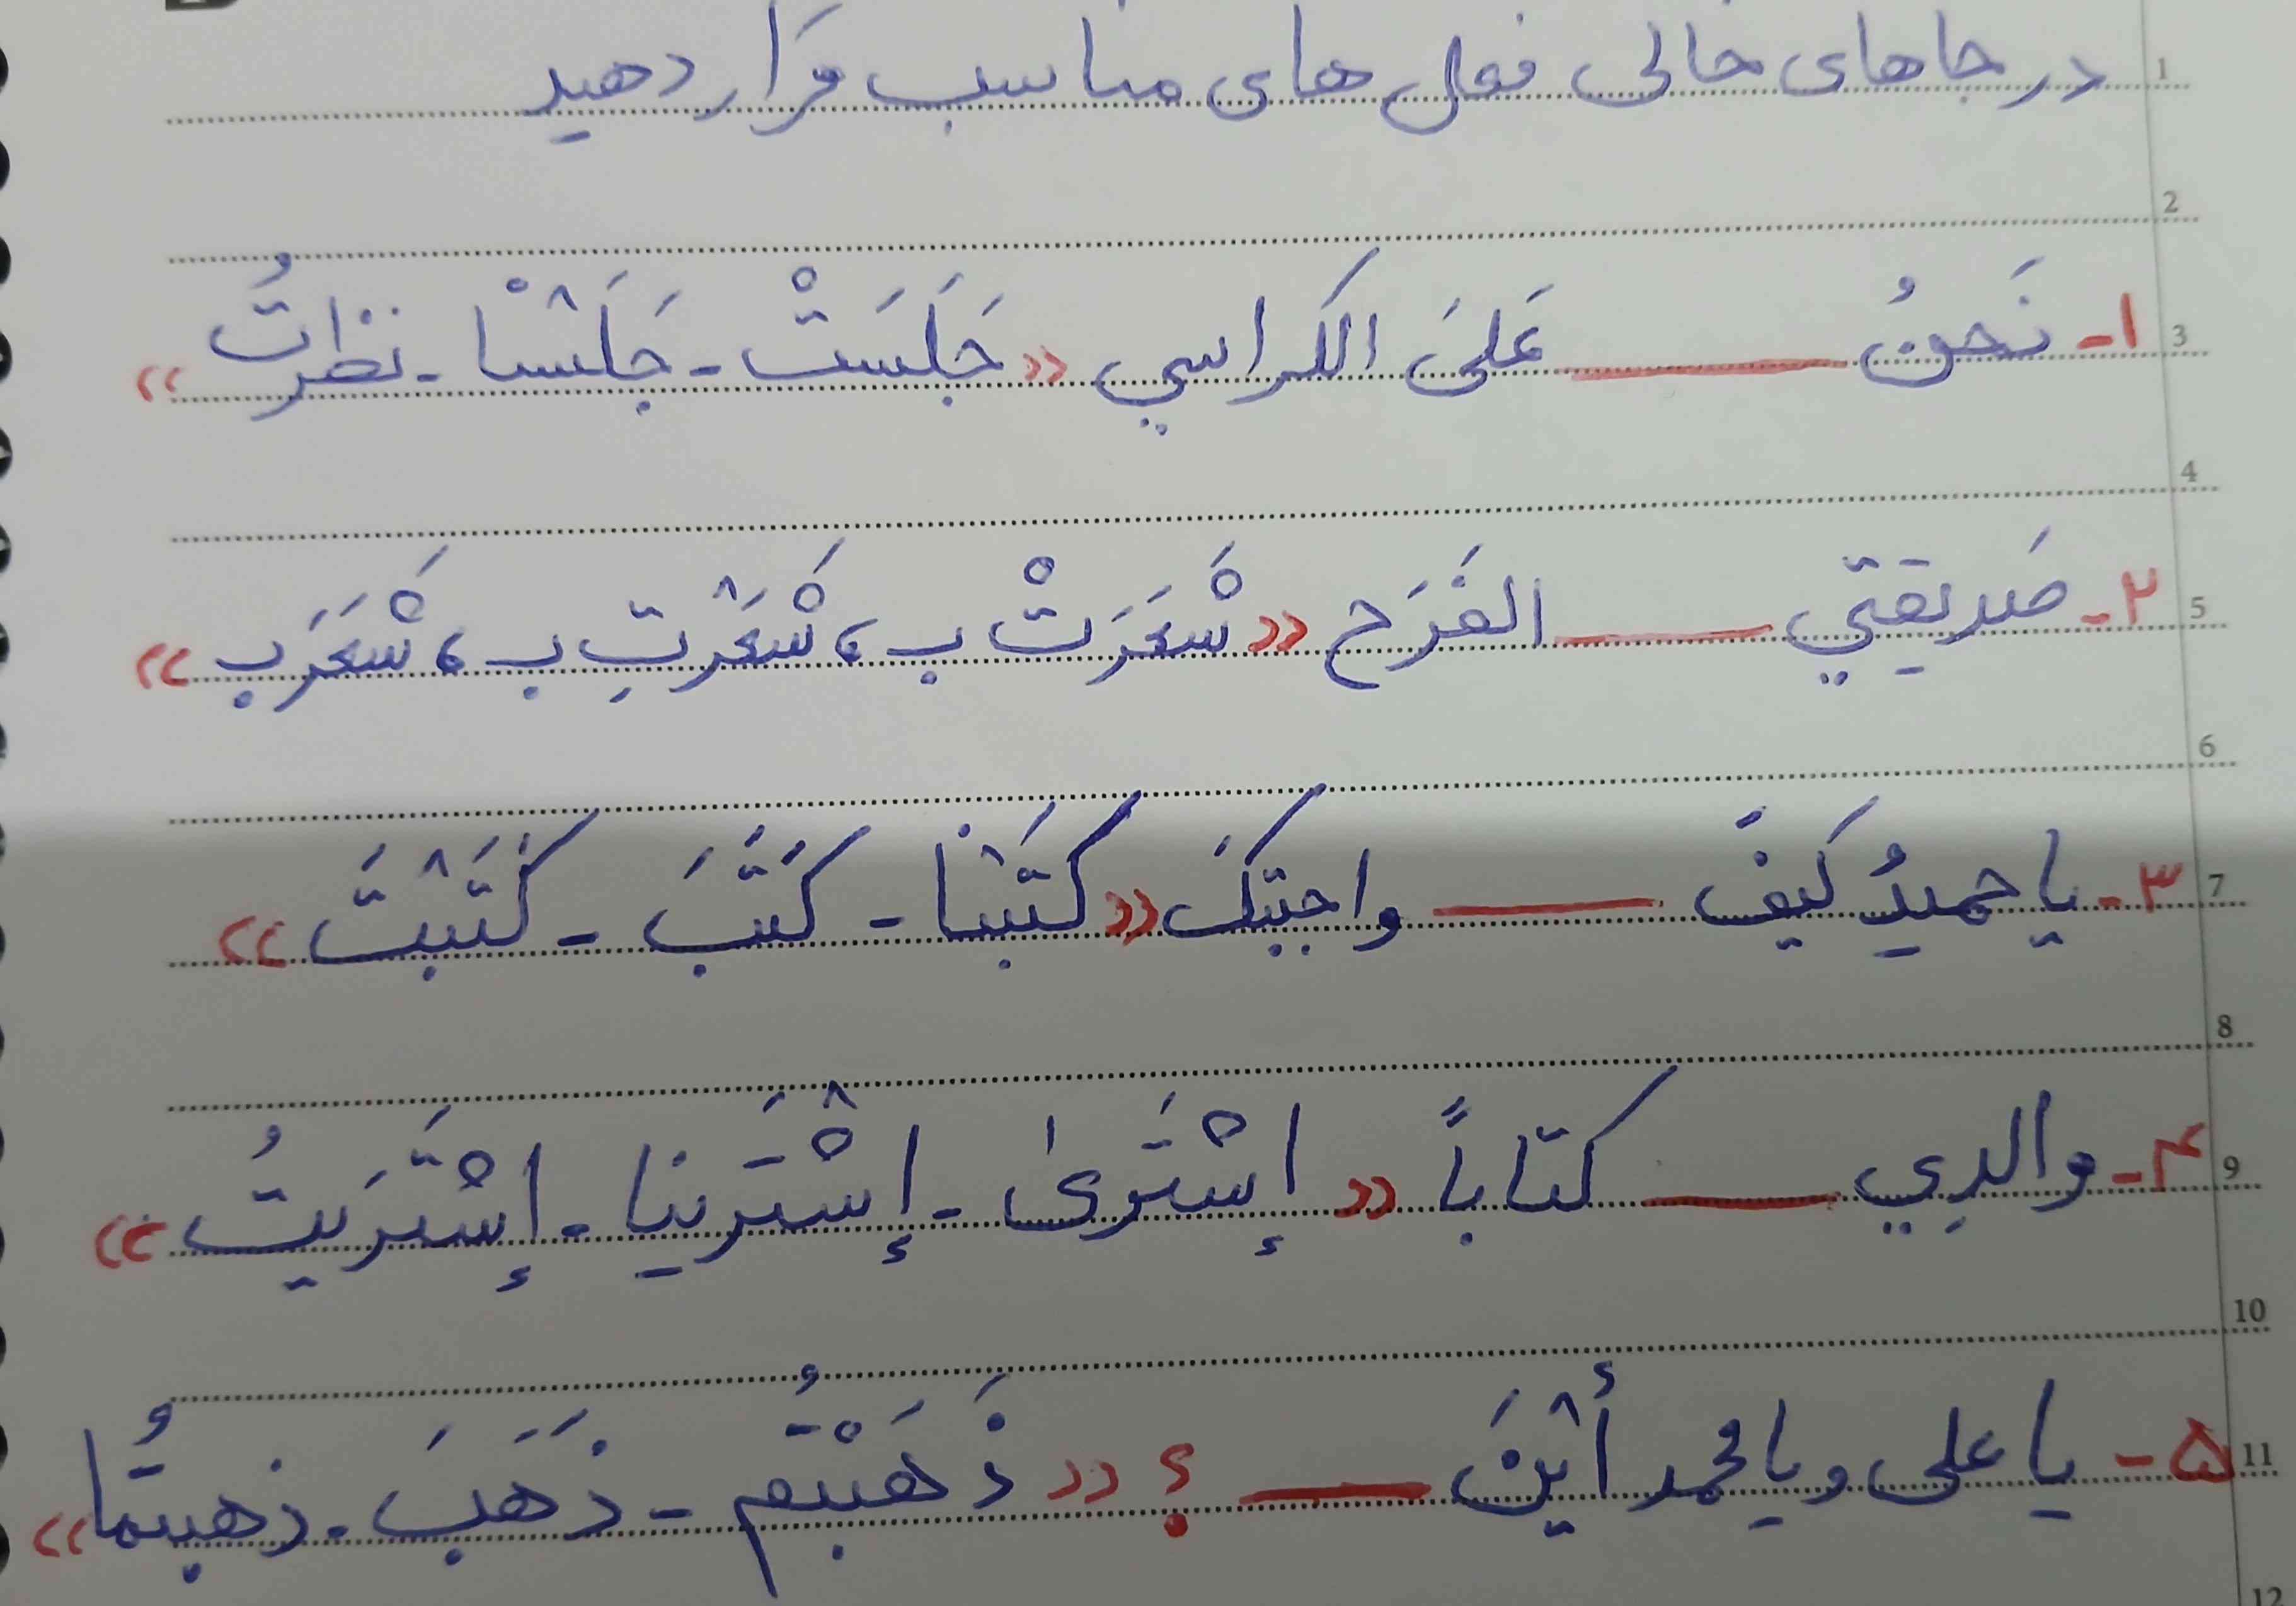 در جاهای خالی فعل های مناسب قرار دهید
۱- نَحنُ ــــــ عَلیَ الکراسي «جَلَسَتْ - جَلَسْنا - نظراتُ»
۲- صَدیقتي ــــــ الفَرَح «شَعَرَتْ بِ، شَعَرْتِ بِ، شَعَرَبِ»
۳- یا حمیدُ کَیفَ ــــــ واجبتکَ «کَتَبْنا - کَتَبَ - کَتَبْتَ»
۴- والدِي ــــــ کتاباً «إشتَریٰ - إشْتَرَینا - إشتَرَیتُ»
۵- یا علی و یا محمد أیْنَ ــــــ ؟ «ذَهَبْتُم - ذَهَبَ - ذهبتُما»
1
2
3
4
5
6
7
8
9
10
11
12